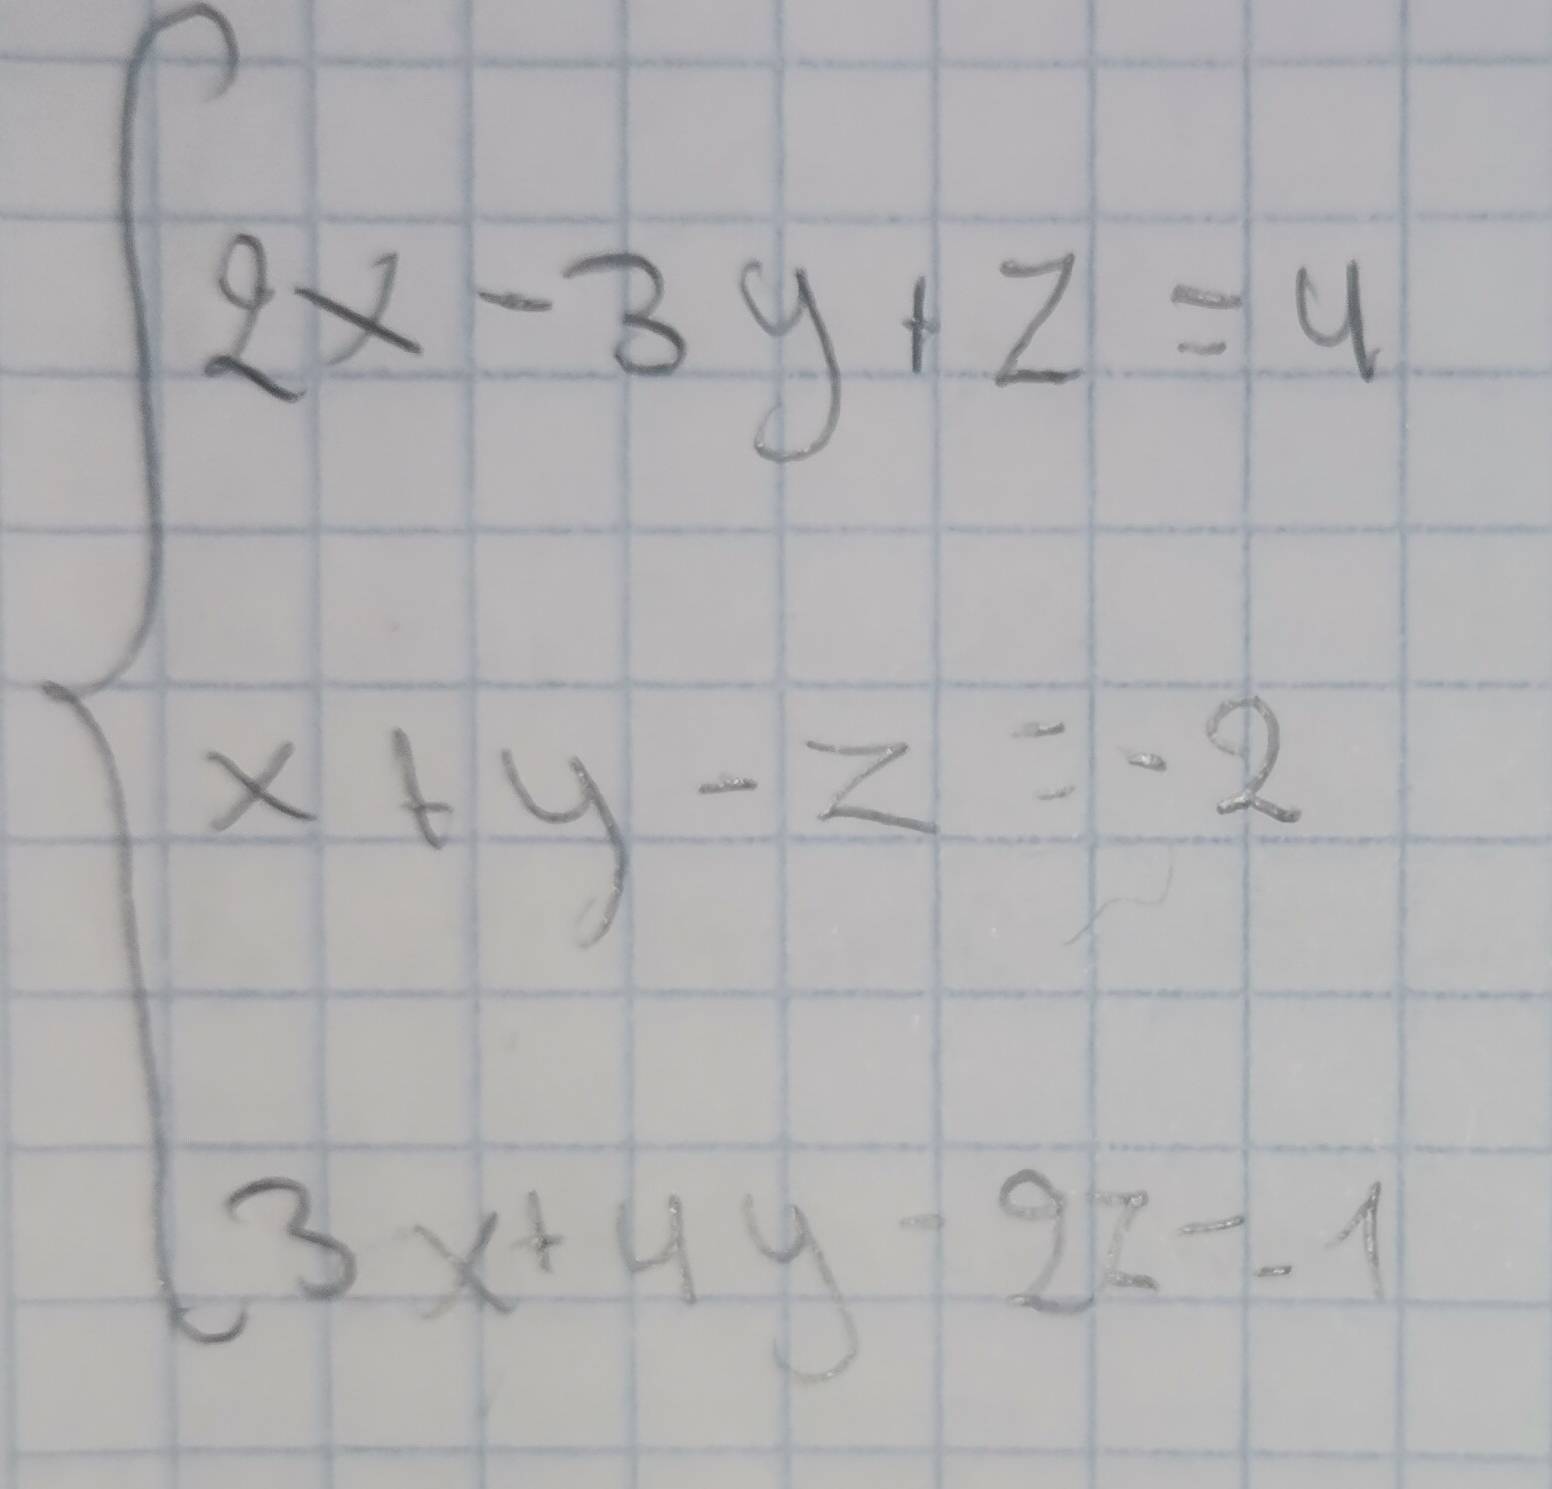 2x - 3y + z = 4
x + y - z = -2
3x + 4y - 2z = -1